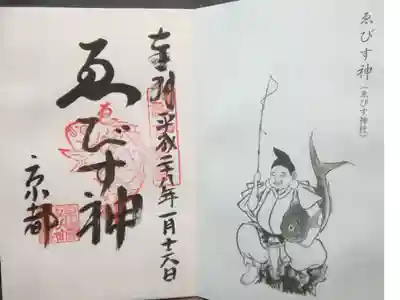 奉拝 平成二十八年一月十六日
ゑびす神
京都
ゑびす神(ゑびす神社)